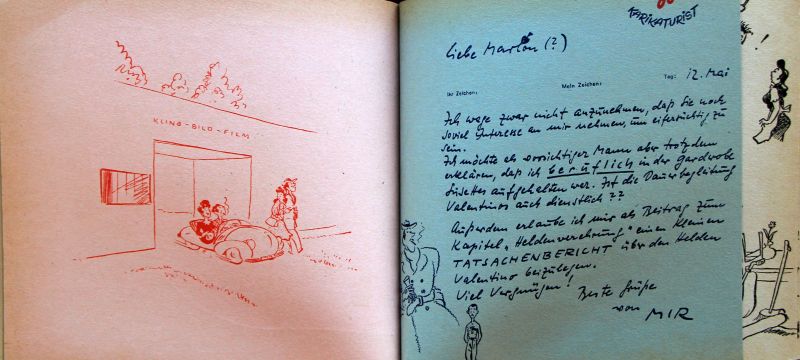 KLING-BILD-FILM
KARIKATURIST
Liebe Marlon (?)
Ihr Zeichen: Mein Zeichen: Tag: 12. Mai
Ich wage zwar nicht anzunehmen, daß Sie noch
soviel Interesse an mir nehmen, um eifersüchtig zu
sein.
Ich möchte als vorsichtiger Mann aber trotzdem
erklären, daß ich beruflich in der Garderobe
Susettes aufgehalten war. Ist die Dauerbegleitung
Valentinos auch dienstlich??
Außerdem erlaube ich mir als Beitrag zum
Kapitel „Heldenverehrung" einen kleinen
TATSACHENBERICHT über den Helden
Valentino beizulegen.
Viel Vergnügen!
Beste Grüße
von MIR